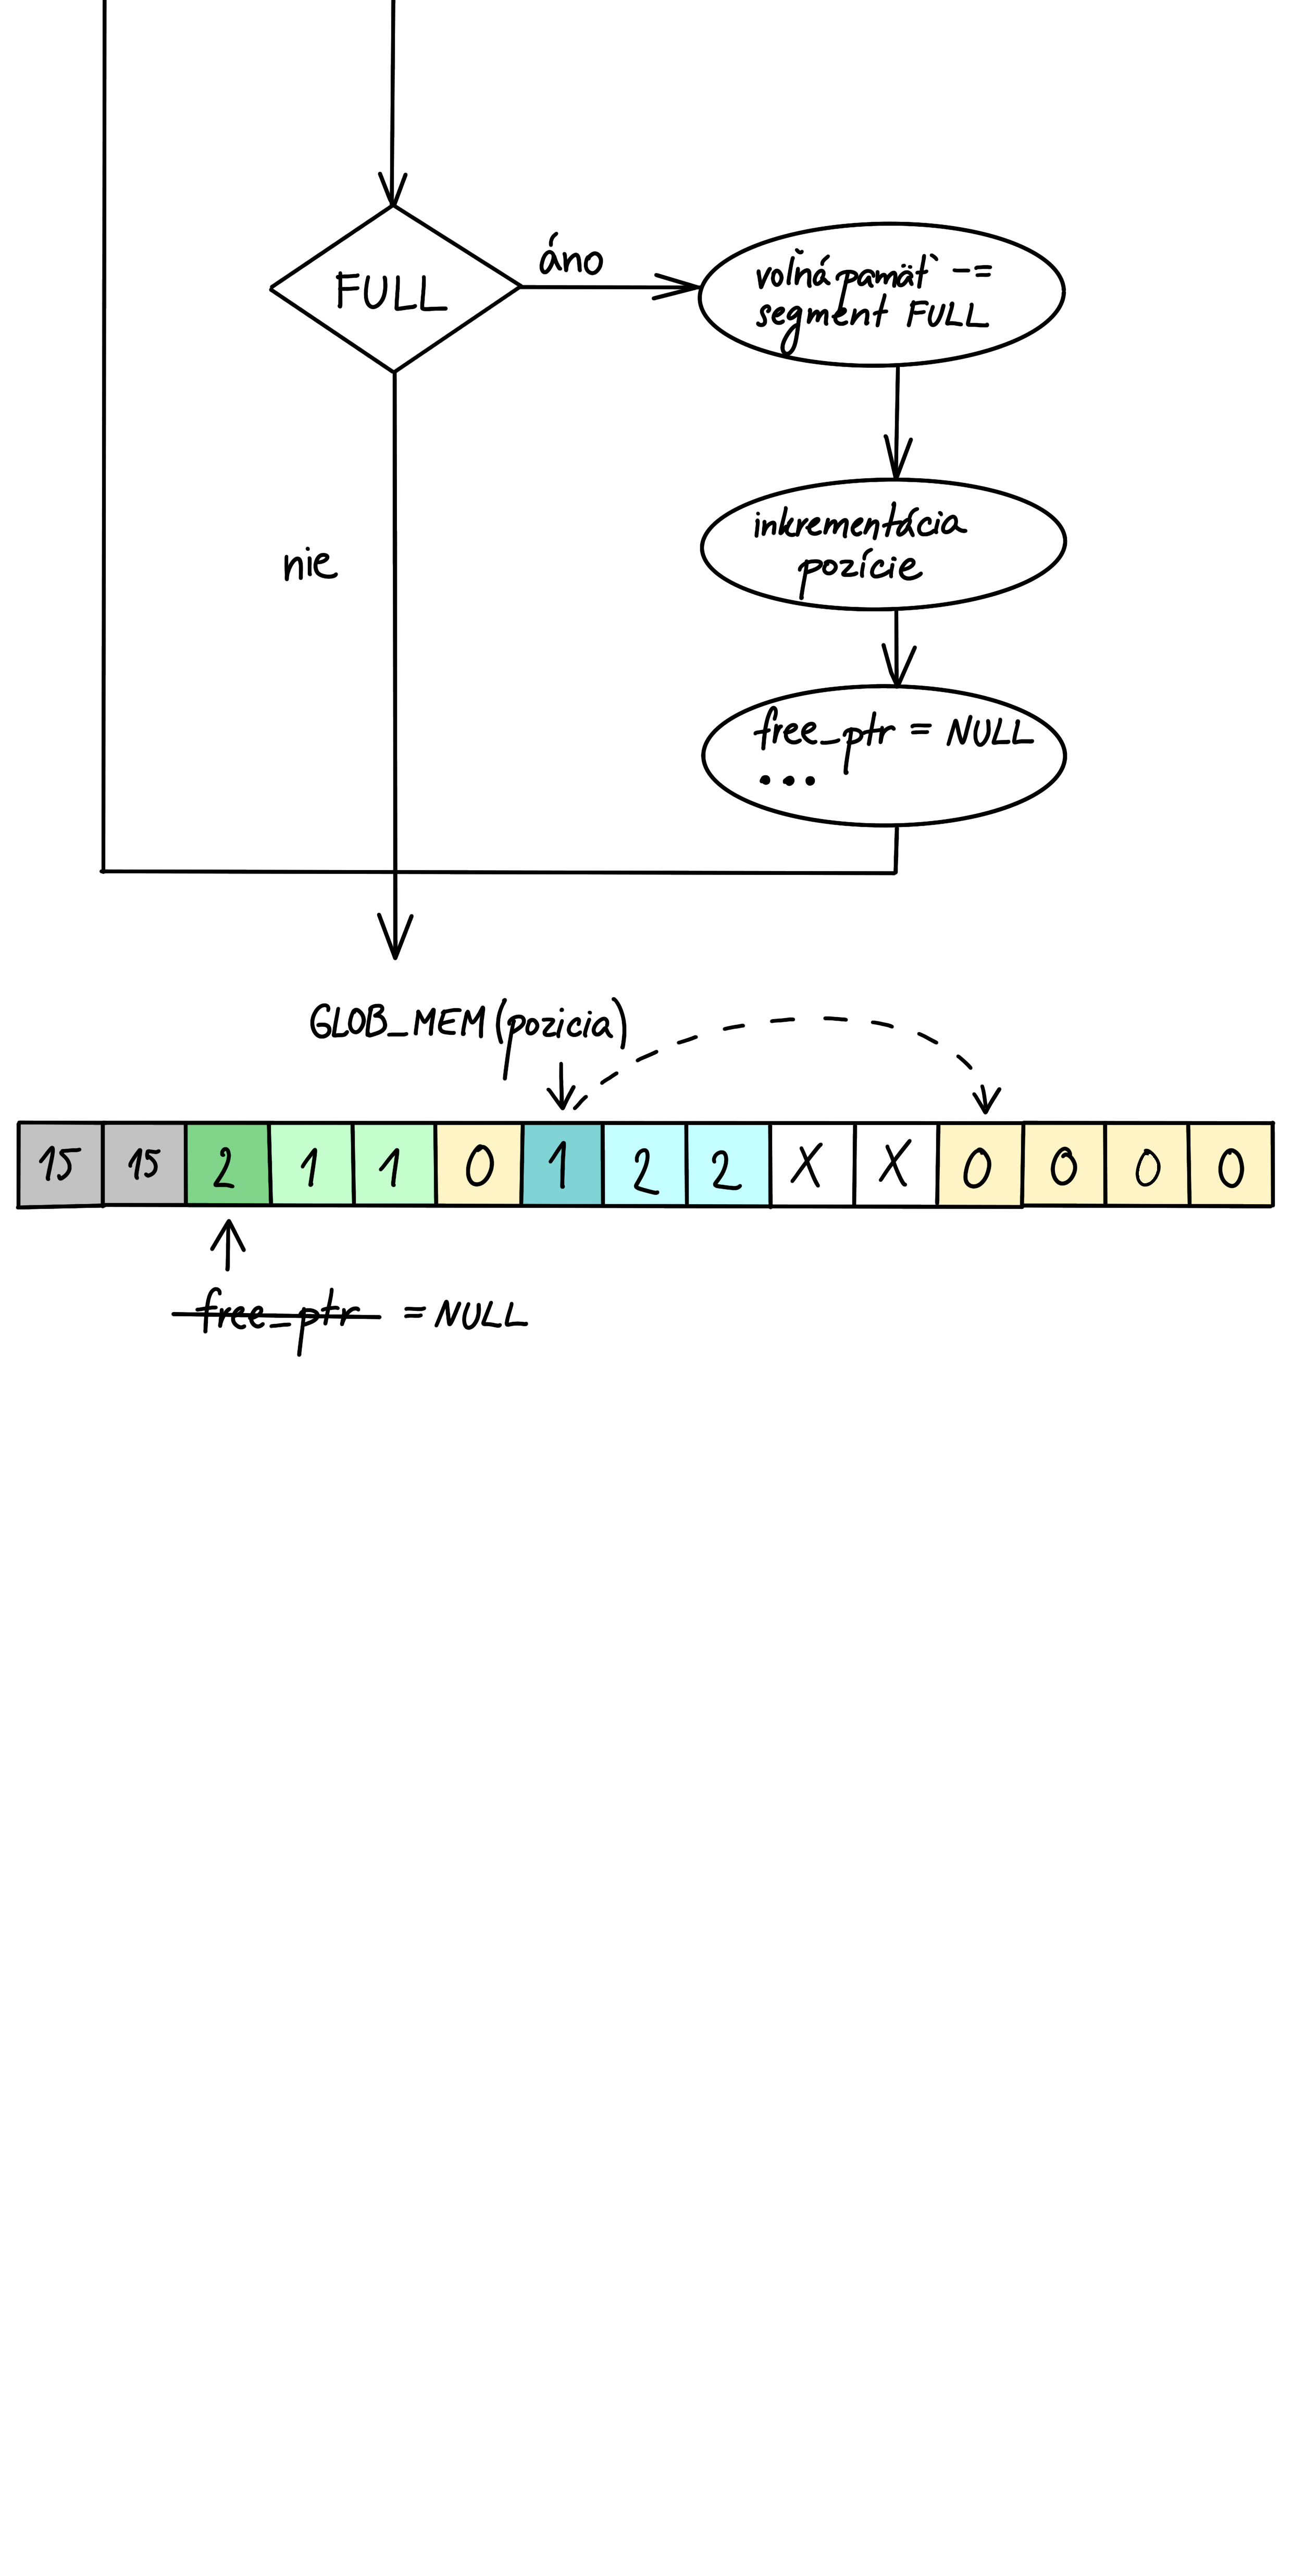 áno
FULL
voľná pamäť -=
segment FULL
nie
inkrementácia
pozície
free_ptr = NULL
...
GLOB_MEM(pozicia)
15 15 2 1 1 0 1 2 2 X X 0 0 0 0
free_ptr = NULL